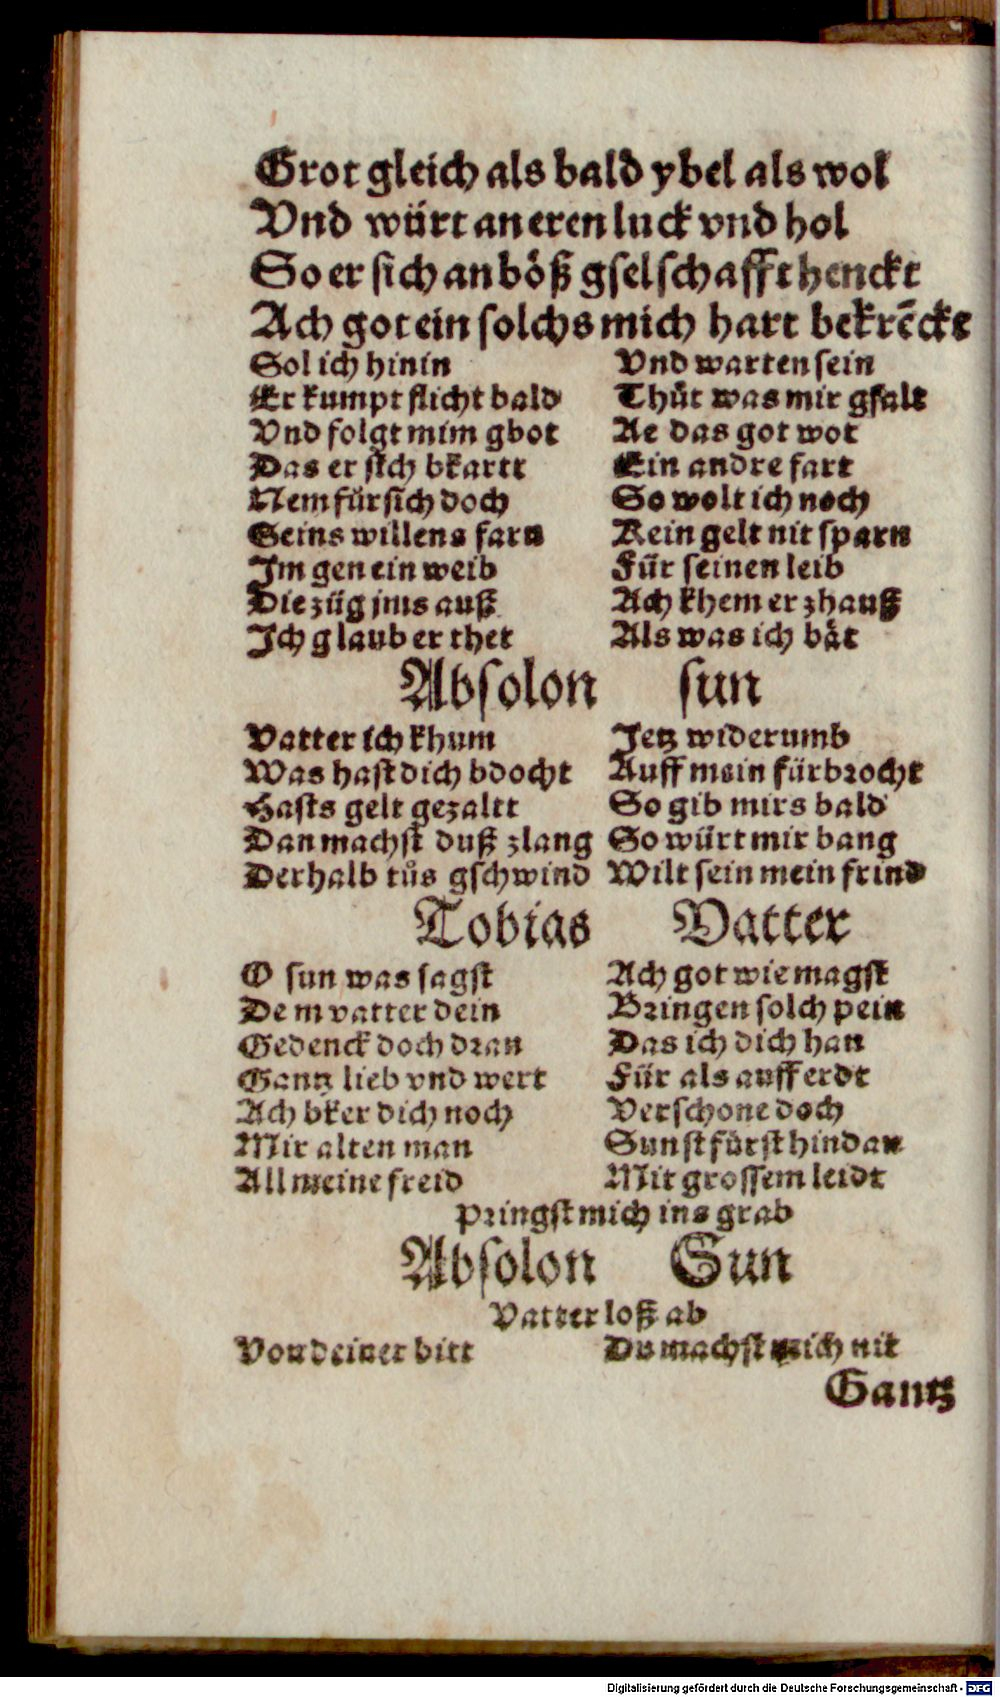 Grot gleich als bald ybel als wol
Vnd würt an eren luck vnd hol
So er sich an böß gselschafft henckt
Ach got ein solchs mich hart bekrēckt
Sol ich hinin Vnd warten sein
Er kumpt flicht bald Thůt was mir gfalt
Vnd folgt mim gbot Ae das got wot
Das er sich bkartt Ein andre fart
Nem für sich doch So wolt ich noch
Seins willens farn Kein gelt nit sparn
Im gen ein weib Für seinen leib
Die züg jms auß Ach khem er zhauß
Ich glaub er thet Als was ich bät
Absolon sun
Vatter ich khum Jetz widerumb
Was hast dich bdocht Auff mein fürbrocht
Hasts gelt gezaltt So gib mirs bald
Dan machst duß zlang So würt mir bang
Derhalb tůs gschwind Wilt sein mein frind
Tobias Vatter
O sun was sagst Ach got wie magst
Dem vatter dein Bringen solch pein
Gedenck doch dran Das ich dich han
Gantz lieb vnd wert Für als auff erdt
Ach bker dich noch Verschone doch
Mir alten man Sunst fürst hindan
All meine freid Mit grossem leidt
Pringst mich ins grab
Absolon Sun
Vatter loß ab
Von deiner bitt Du machst mich nit
Gantz
Digitalisierung gefördert durch die Deutsche Forschungsgemeinschaft - DFG